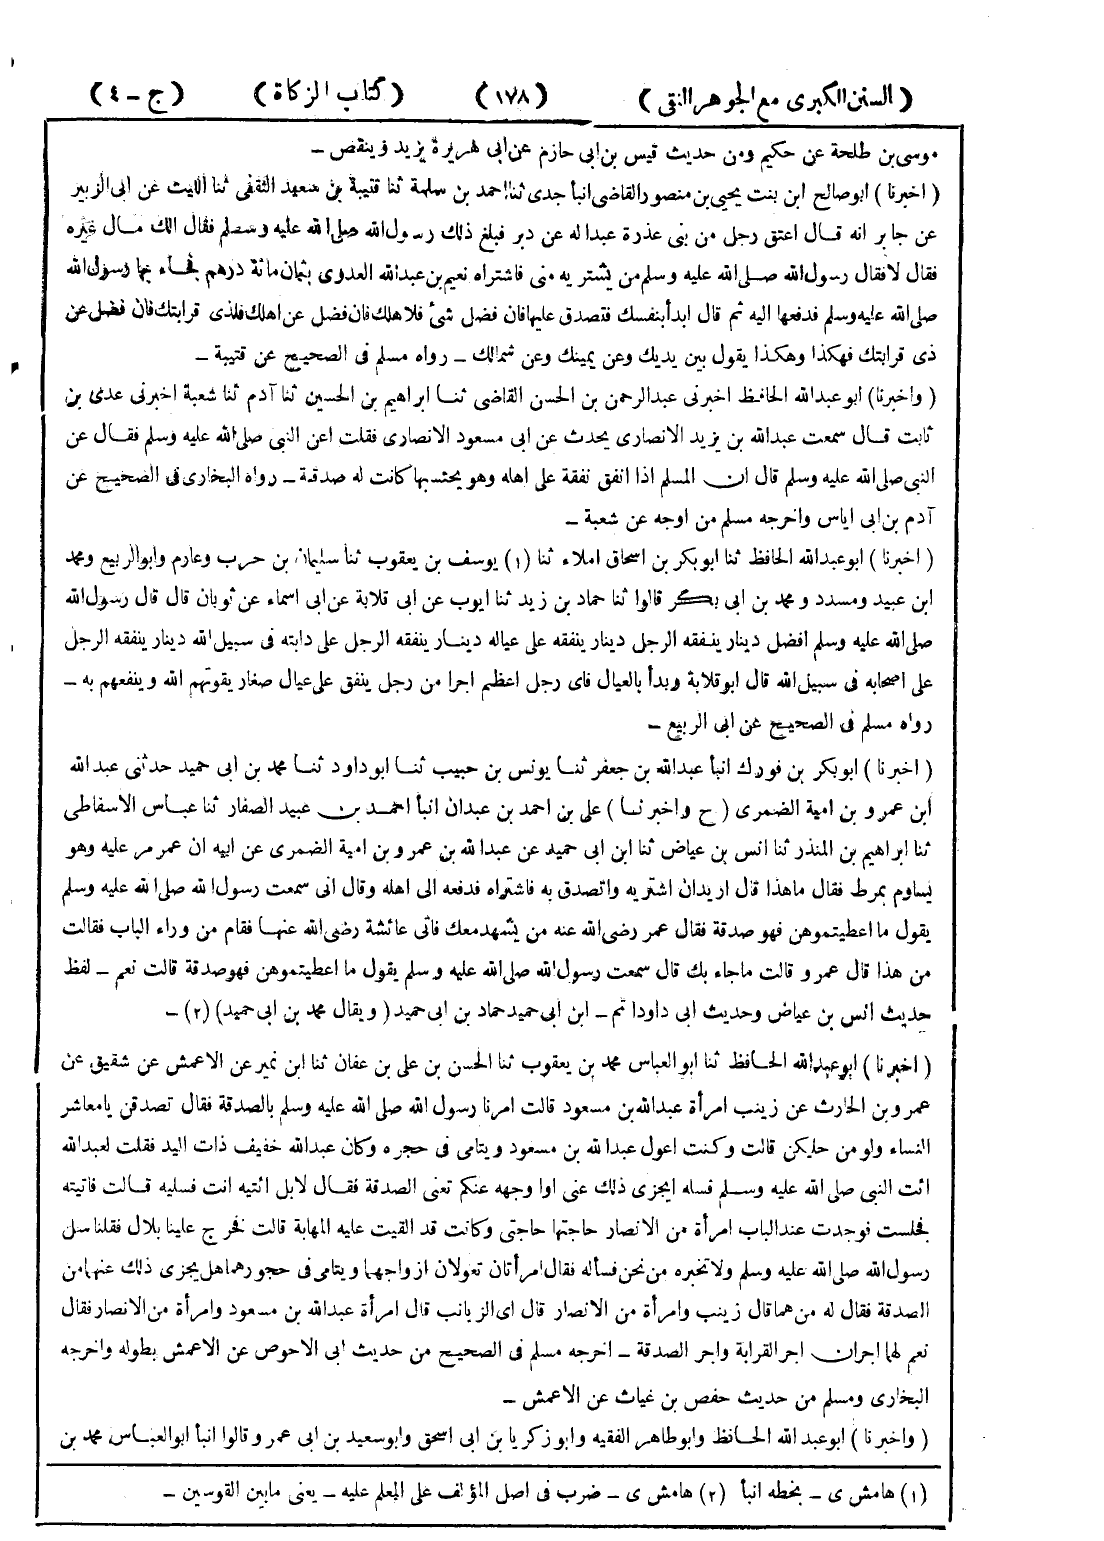 (السنن الكبرى مع الجوهر النقى) (١٧٨) (كتاب الزكاة) (ج - ٤)
موسى بن طلحة عن حكيم ومن حديث قيس بن ابى حازم عن ابى هريرة يزيد وينقص -
( اخبرنا ) ابوصالح ابن بنت يحيى بن منصور القاضى انبأ جدى ثنا احمد بن سلمة ثنا قتيبة بن سعيد الثقفى ثنا الليث عن ابى الزبير
عن جابر انه قال اعتق رجل من بنى عذرة عبدا له عن دبر فبلغ ذلك رسول الله صلى الله عليه وسلم فقال الك مال غيره
فقال لا فقال رسول الله صلى الله عليه وسلم من يشتريه منى فاشتراه نعيم بن عبدالله العدوى بثمان مائة درهم فجاء بها رسول الله
صلى الله عليه وسلم فدفعها اليه ثم قال ابدأ بنفسك فتصدق عليها فان فضل شئ فلاهلك فان فضل عن اهلك فلذى قرابتك فان فضل عن
ذى قرابتك فهكذا وهكذا يقول بين يديك وعن يمينك وعن شمالك - رواه مسلم فى الصحيح عن قتيبة -
( واخبرنا) ابوعبدالله الحافظ اخبرنى عبدالرحمن بن الحسن القاضى ثنا ابراهيم بن الحسين ثنا آدم ثنا شعبة اخبرنى عدى بن
ثابت قال سمعت عبدالله بن يزيد الانصارى يحدث عن ابى مسعود الانصارى فقلت اعن النبى صلى الله عليه وسلم فقال عن
النبى صلى الله عليه وسلم قال ان المسلم اذا انفق نفقة على اهله وهو يحتسبها كانت له صدقة - رواه البخارى فى الصحيح عن
آدم بن ابى اياس واخرجه مسلم من اوجه عن شعبة -
( اخبرنا ) ابوعبدالله الحافظ ثنا ابوبكر بن اسحاق املاء ثنا (١) يوسف بن يعقوب ثنا سليمان بن حرب وعارم وابوالربيع ومحمد
ابن عبيد ومسدد ومحمد بن ابى بكر قالوا ثنا حماد بن زيد ثنا ايوب عن ابى قلابة عن ابى اسماء عن ثوبان قال قال رسول الله
صلى الله عليه وسلم افضل دينار ينفقه الرجل دينار ينفقه على عياله دينار ينفقه الرجل على دابته فى سبيل الله دينار ينفقه الرجل
على اصحابه فى سبيل الله قال ابوقلابة وبدأ بالعيال فاى رجل اعظم اجرا من رجل ينفق على عيال صغار يقوتهم الله وينفعهم به -
رواه مسلم فى الصحيح عن ابى الربيع -
( اخبرنا ) ابوبكر بن فورك انبأ عبدالله بن جعفر ثنا يونس بن حبيب ثنا ابوداود ثنا محمد بن ابى حميد حدثنى عبدالله
ابن عمرو بن امية الضمرى ( ح واخبرنا ) على بن احمد بن عبدان انبأ احمد بن عبيد الصفار ثنا عباس الاسفاطى
ثنا ابراهيم بن المنذر ثنا انس بن عياض ثنا ابن ابى حميد عن عبدالله بن عمرو بن امية الضمرى عن ابيه ان عمر مر عليه وهو
يساوم بمرط فقال ماهذا قال اريدان اشتريه واتصدق به فاشتراه فدفعه الى اهله وقال انى سمعت رسول الله صلى الله عليه وسلم
يقول ما اعطيتموهن فهو صدقة فقال عمر رضى الله عنه من يشهدمعك فاتى عائشة رضى الله عنها فقام من وراء الباب فقالت
من هذا قال عمرو قالت ماجاء بك قال سمعت رسول الله صلى الله عليه وسلم يقول ما اعطيتموهن فهوصدقة قالت نعم - لفظ
حديث انس بن عياض وحديث ابى داودا تم - ابن ابى حميد حماد بن ابى حميد ( ويقال محمد بن ابى حميد) (٢) -
( اخبرنا ) ابوعبدالله الحافظ ثنا ابوالعباس محمد بن يعقوب ثنا الحسن بن على بن عفان ثنا ابن نمير عن الاعمش عن شقيق عن
عمرو بن الحارث عن زينب امرأة عبدالله بن مسعود قالت امرنا رسول الله صلى الله عليه وسلم بالصدقة فقال تصدقن يامعاشر
النساء ولو من حليكن قالت وكنت اعول عبدالله بن مسعود ويتامى فى حجره وكان عبدالله خفيف ذات اليد فقلت لعبدالله
ائت النبى صلى الله عليه وسلم فسله ايجزى ذلك عنى اوا وجهه عنكم تعنى الصدقة فقال لابل ائتيه انت فسليه قالت فاتيته
فجلست فوجدت عندالباب امرأة من الانصار حاجتها حاجتى وكانت قد القيت عليه المهابة قالت فخرج علينا بلال فقلنا سل
رسول الله صلى الله عليه وسلم ولا تخبره من نحن فسأله فقال امرأتان تعولان ازواجهما ويتامى فى حجورهما هل يجزى ذلك عنهما من
الصدقة فقال له من هما قال زينب وامرأة من الانصار قال اى الزيانب قال امرأة عبدالله بن مسعود وامرأة من الانصار فقال
نعم لهما اجران اجر القرابة واجر الصدقة - اخرجه مسلم فى الصحيح من حديث ابى الاحوص عن الاعمش بطوله واخرجه
البخارى ومسلم من حديث حفص بن غياث عن الاعمش -
( واخبرنا ) ابوعبدالله الحافظ وابوطاهر الفقيه وابوزكريا بن ابى اسحق وابوسعيد بن ابى عمرو قالوا انبأ ابوالعباس محمد بن
(١) هامش ى - بخطه انبأ (٢) هامش ى - ضرب فى اصل المؤلف على المعلم عليه - يعنى مابين القوسين -